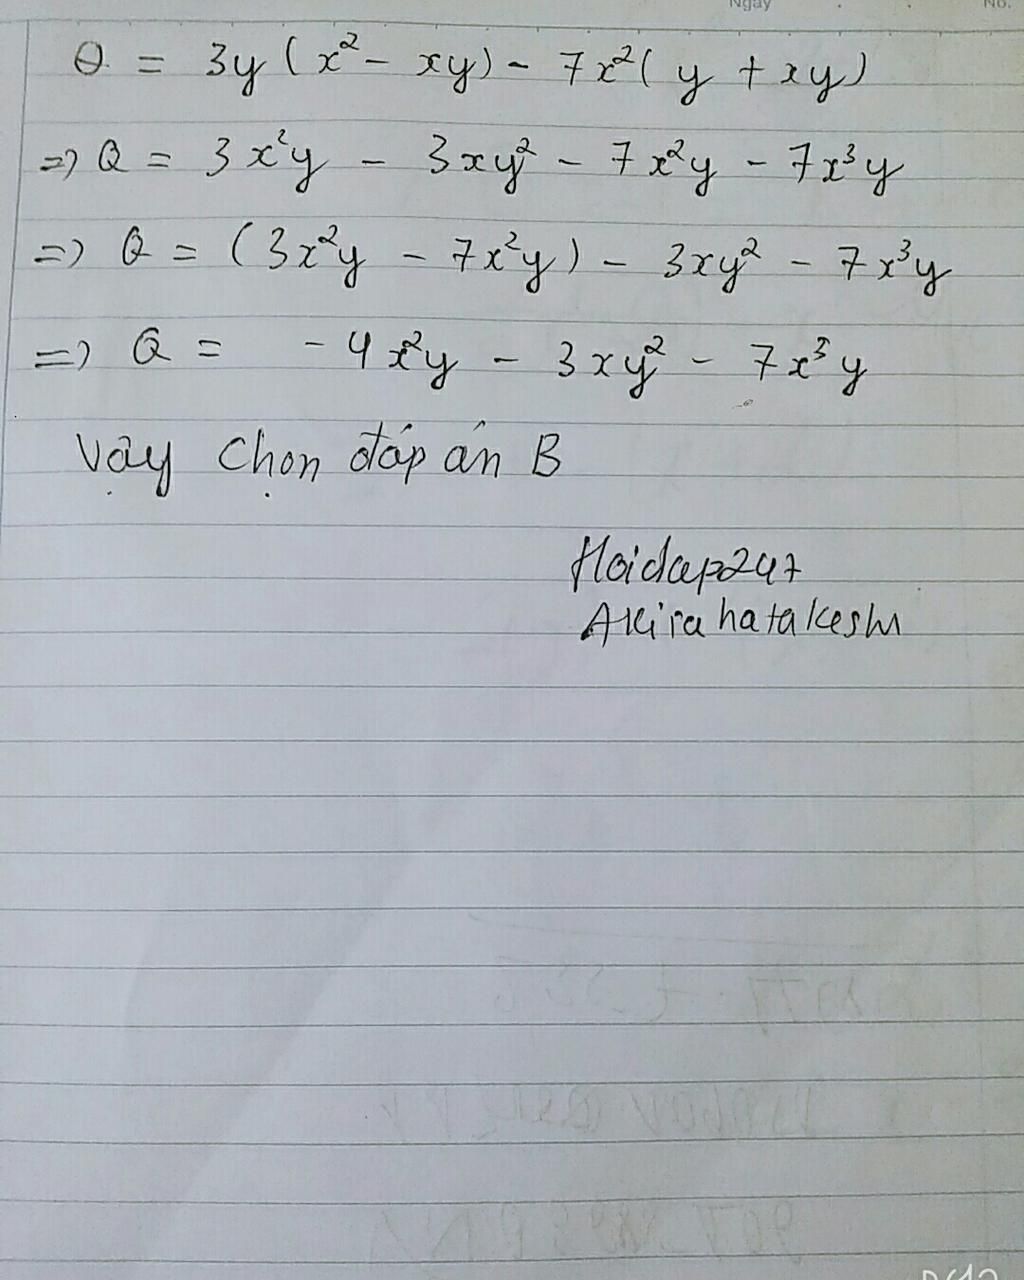 Ngày No.
Q = 3y(x² - xy) - 7x²(y + xy)
=> Q = 3x²y - 3xy² - 7x²y - 7x³y
=> Q = (3x²y - 7x²y) - 3xy² - 7x³y
=> Q = -4x²y - 3xy² - 7x³y
Vậy chọn đáp án B
Hoidap247
Akirahatakeshi